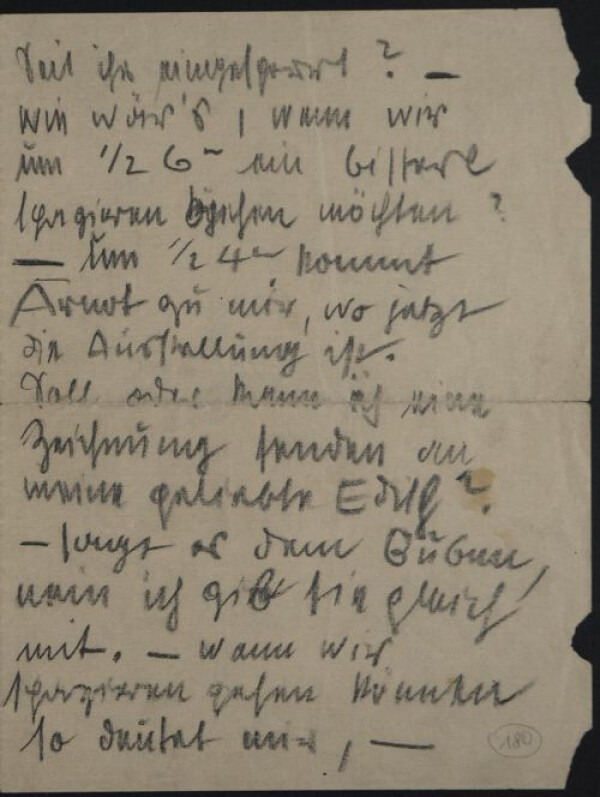 Seit ihr eingesperrt? —
wie wär's, wenn wir
um ½ 6h ein bisserl
spazieren gehen möchten?
— Um ½ 4h kommt
Arnot zu mir, wo jetzt
die Ausstellung ist.
Soll oder kann ich eine
Zeichnung senden an
meine geliebte Edith?
— sagt es dem Buben,
nein ich gib sie gleich
mit. — wenn wir
spazieren gehen könnten
so deutet mir, —
180